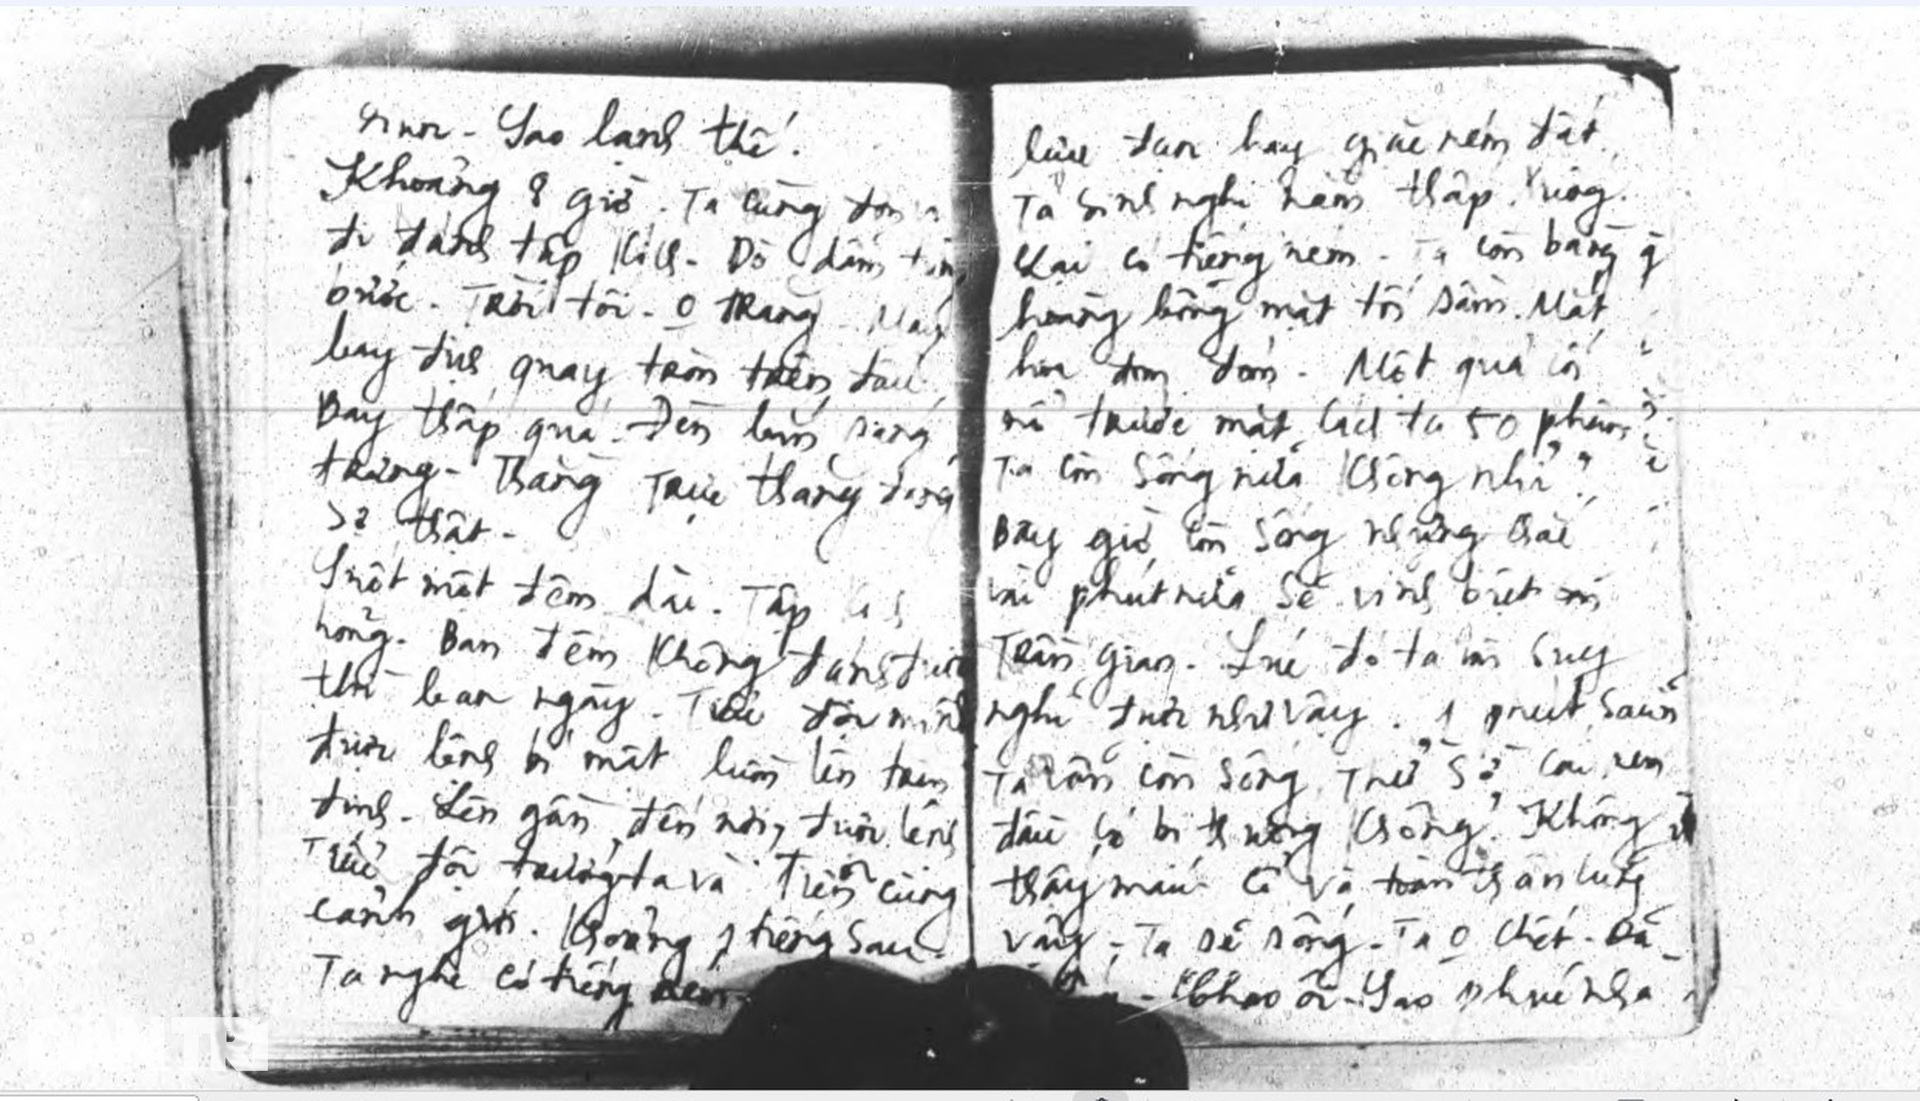 Sao lạnh thế.
Khoảng 8 giờ. Ta cùng đơn
đi đánh tập kích. Dò dẫm từng
bước. Trời tối. 0 trăng. Máy
bay địch quay tròn trên đầu.
Bay thấp quá. Đèn lắm sáng
trưng. Thằng trực thăng đáng
sợ thật.
Suốt một đêm dài. Tập
hỏng. Ban đêm không đánh được
thì ban ngày. Tiểu đội mình
được lệnh bí mật luồn lên trên
đỉnh. Lên gần đến nơi, được lệnh
Tiểu đội trưởng ta và Tiến cùng
cảnh giới. Khoảng 1 tiếng sau.
Ta nghe có tiếng ném
lựu đạn hay giặc ném đất.
Ta sinh nghi nằm thấp xuống.
Lại có tiếng ném. Ta còn bàng
hoàng bỗng mặt tối sầm. Mắt
hoa đom đóm. Một quả cối
nổ trước mặt cách ta 50 phân
Ta còn sống nữa không nhỉ?
Bây giờ còn sống nhưng chắc
vài phút nữa sẽ vĩnh biệt
Trần gian. Lúc đó ta còn suy
nghĩ được như vậy. 1 phút sau
Ta vẫn còn sống. Thử sờ coi xem
đầu có bị thương không? Không
thấy máu. Cổ và toàn thân cứng
vẫn. Ta sẽ sống. Ta 0 chết. Đã
Chao ôi. Sao phúc nhà